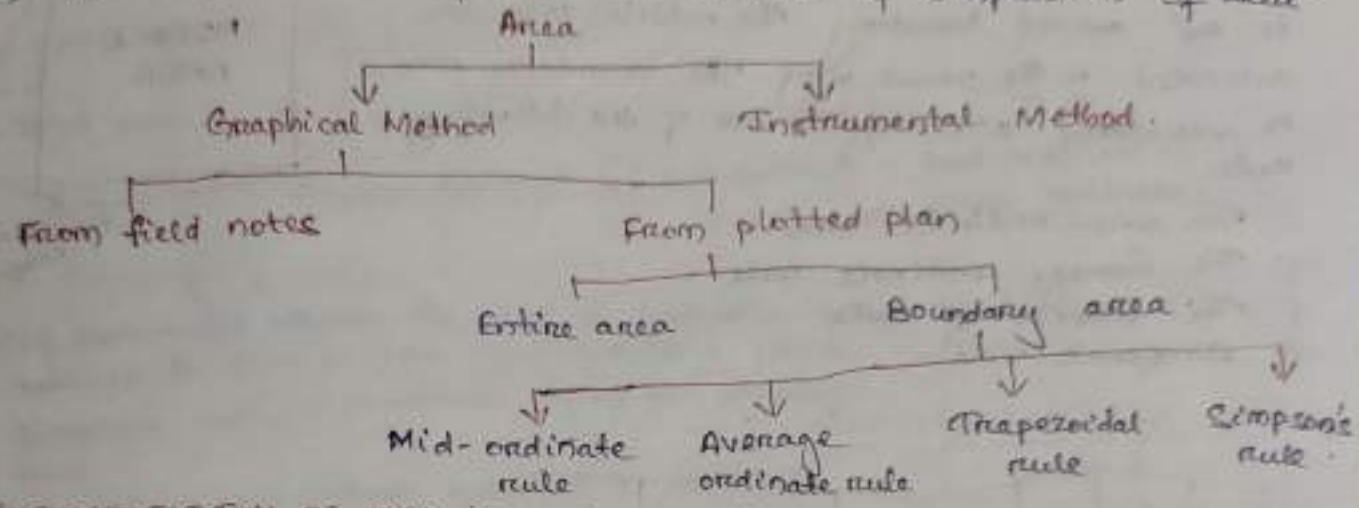 Area
Graphical Method Instrumental Method.
From field notes From plotted plan
Entire area Boundary area.
Mid-ordinate rule Average ordinate rule Trapezoidal rule Simpson's rule.